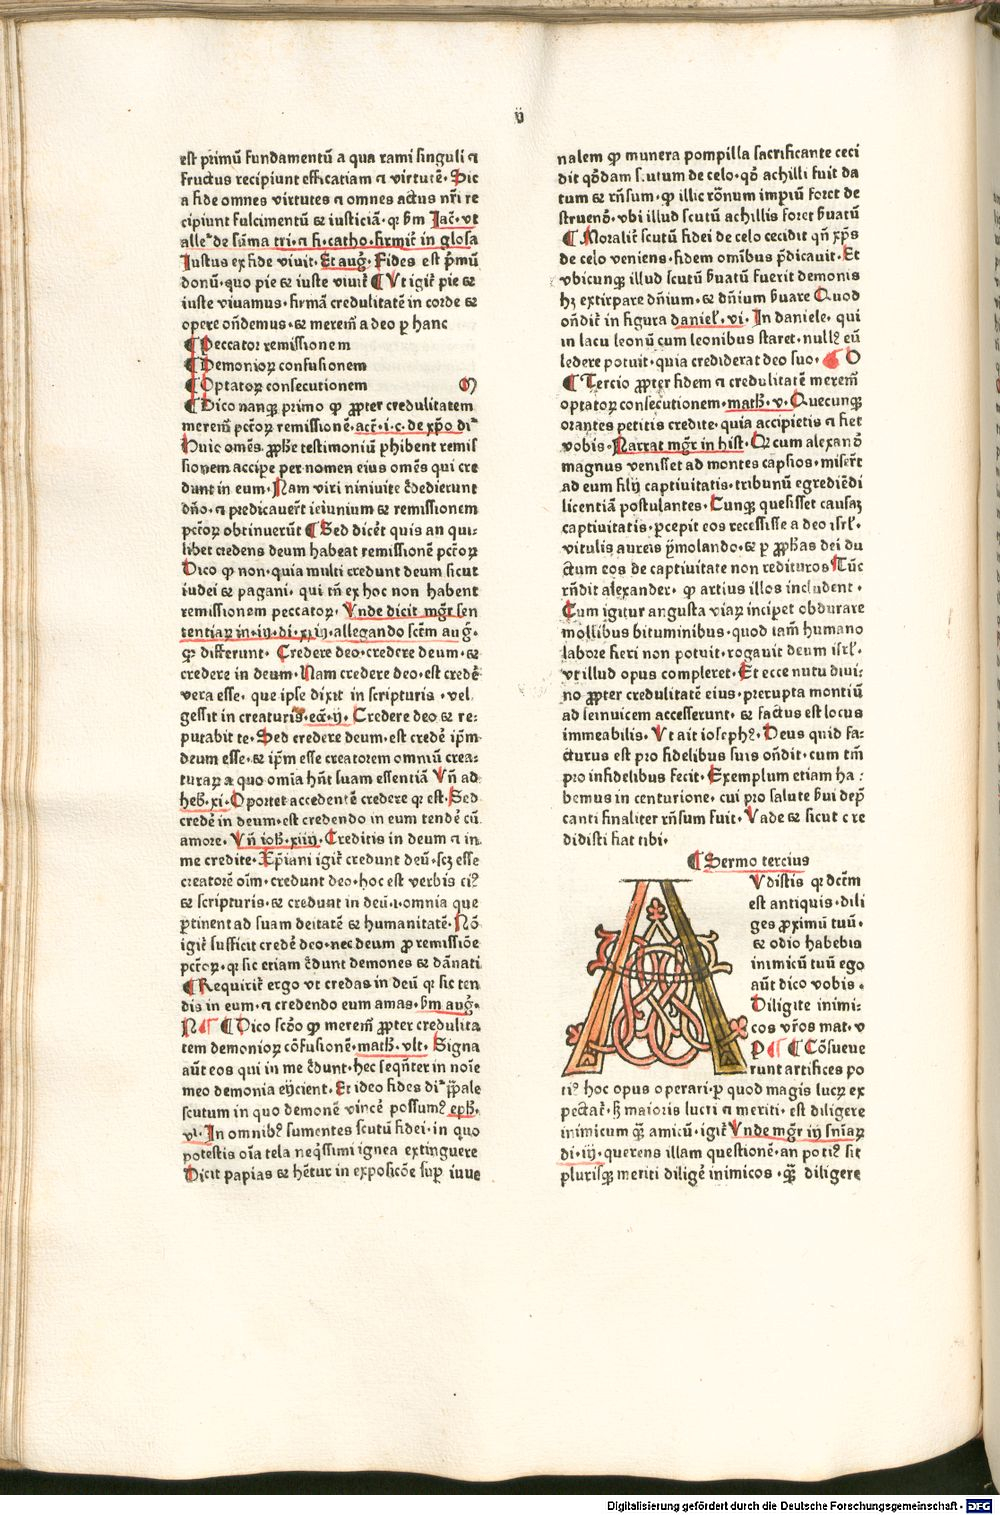 ü
est primū fundamentū a qua rami singuli ⁊
fructus recipiunt efficatiam ⁊ virtutē· Sic
a fide omnes virtutes ⁊ omnes actus nr̄i re
cipiunt fulcimentū ⁊ iusticiā· qꝛ b̄m Jac̄· vt
alleᵗ de sūma tri· ⁊ fi· catho· firmit̄ in glosa
Justus ex fide viuit· Et auḡ· Fides est p̄mū
donū· quo pie ⁊ iuste viuit̄ ¶ Vt igit̄ pie ⁊
iuste viuamus· firmā credulitatē in corde ⁊
opere on̄demus· ⁊ merem̄ a deo p hanc
¶ Peccatoꝝ remissionem
¶ Demonioꝝ confusionem
¶ Optatoꝝ consecutionem
¶ Dico nanqꝫ primo ꝙ ꝓpter credulitatem
merem̄ pct̄oꝝ remissionē· act̄· i· c· de xp̄o diᵗ
Huic omēs ꝓphe testimoniū phibent remis
sionem accipe per nomen eius omēs qui cre
dunt in eum· Nam viri niniuite c̄dedierunt
dn̄o· ⁊ predicauer̄t ieiunium ⁊ remissionem
pct̄oꝝ obtinuerūt ¶ Sed dicet̄ quis an qui-
libet credens deum habeat remissionē pct̄oꝝ
Dico ꝙ non· quia multi credunt deum sicut
iudei ⁊ pagani· qui tn̄ ex hoc non habent
remissionem peccatoꝝ· Vnde dicit mgr̄ sen
tentiaꝝ in· iij· di· xxiij· allegando sct̄m auḡ·
ꝙ differunt· Credere deo· credere deum· ⁊
credere in deum· Nam credere deo· est credē
vera esse· que ipse dixit in scripturis· vel
gessit in creaturis· ec̄a· ij· Credere deo ⁊ re-
putabit te· Sed credere deum· est credē ip̄m
deum esse· ⁊ ip̄m esse creatorem omniū crea-
turaꝝ a quo om̄ia hn̄t suam essentiā Vn̄ ad
heb̄· xi· Oportet accedentē credere qꝛ est· Sed
credē in deum· est credendo in eum tendē cū
amore· Vn̄ ioh̄· xiiij· Creditis in deum ⁊ in
me credite· Xp̄iani igit̄ credunt deū· scꝫ esse
creatorē oīm· credunt deo· hoc est verbis eiꝰ
⁊ scripturis· ⁊ credunt in deū· i· omnia que
ꝑtinent ad suam deitatē ⁊ humanitatē· Nō
igit̄ sufficit credē deo· nec deum ꝓ remissiōe
pct̄oꝝ· qꝛ sic etiam c̄dunt demones ⁊ dānati
¶ Requirit̄ ergo vt credas in deū qꝛ sic ten
dis in eum· ⁊ credendo eum amas· b̄m auḡ·
N ¶ ¶ Dico sc̄do ꝙ merem̄ ꝓpter credulita
tem demonioꝝ cōfusionē· math̄· vlt· Signa
aūt eos qui in me c̄dunt· hec seqn̄ter in noīe
meo demonia eijcient· Et ideo fides diᵗ pp̄ale
scutum in quo demonē vincē possumꝰ eph̄·
vi· In omnibꝰ sumentes scutū fidei· in quo
potestis oīa tela neqͥssimi ignea extinguere
Dicit papias ⁊ het̄ur in exposicōe suꝑ iuue
nalem ꝙ munera pompilla sacrificante ceci
dit qōdam scutum de celo· qō achilli fuit da
tum ⁊ rn̄sum· ꝙ illic rōnum impiū foret de
struenō· vbi illud scutū achillis foret b̄uatū
¶ Moralit̄ scutū fidei de celo cecidit qn̄ xp̄s
de celo veniens· fidem omībus p̄dicauit· Et
vbicunqꝫ illud scutū b̄uatū fuerit demonis
hꝫ extirpare dn̄ium· ⁊ dn̄ium b̄uare Quod
on̄dit̄ in figura daniel̄· vi· In daniele· qui
in lacu leonū cum leonibus staret· nullꝰ eū
ledere potuit· quia crediderat deo suo· ¶ O
¶ Tercio ꝓpter fidem ⁊ credulitatē merem̄
optatoꝝ consecutionem· math̄· v· Quecunqꝫ
orantes petitis credite· quia accipietis ⁊ fiet
vobis· Narrat mgr̄ in hist· Qꝛ cum alexanō
magnus venisset ad montes capsios· miser̄t
ad eum filij captiuitatis· tribunū egrediēdi
licentiā postulantes· Cunqꝫ quesisset causaꝫ
captiuitatis· ꝑcepit eos recessisse a deo isrl̄·
vitulis aureis ymolando· ⁊ p ꝓphas dei du
ctum eos de captiuitate non redituros Tūc
rn̄dit alexander· ꝙ artius illos includent·
Cum igitur angusta viaꝝ incipet obdurare
mollibus bituminibus· quod iam̄ humano
labore fieri non potuit· rogauit deum isrl̄·
vt illud opus compleret· Et ecce nutu diui-
no ꝓpter credulitatē eius· prerupta montiū
ad seinuicem accesserunt· ⁊ factus est locus
immeabilis· Vt ait iosephꝰ· Deus quid fa-
cturus est pro fidelibus suis on̄dit· cum tm̄
pro infidelibus fecit· Exemplum etiam ha-
bemus in centurione· cui pro salute b̄ui dep̄
canti finaliter rn̄sum fuit· Vade ⁊ sicut cre
didisti fiat tibi·
¶ Sermo tercius
AVdistis qꝛ dct̄m
est antiquis· dili
ges ꝓximū tuū·
⁊ odio habebis
inimicū tuū ego
aūt dico vobis·
Diligite inimi-
cos vr̄os mat· v
P ¶ ¶ Cōsueue
runt artifices po
tiꝰ hoc opus operari· ꝑ quod magis lucꝝ ex
pectat̄· sꝫ maioris lucri ⁊ meriti· est diligere
inimicum qͣꝫ amicū· igit̄ Vnde mgr̄ iij sn̄iaꝝ
di· iij· querens illam questionē· an potiꝰ sit
plurisqꝫ meriti diligē inimicos· qͣꝫ diligere
Digitalisierung gefördert durch die Deutsche Forschungsgemeinschaft - DFG